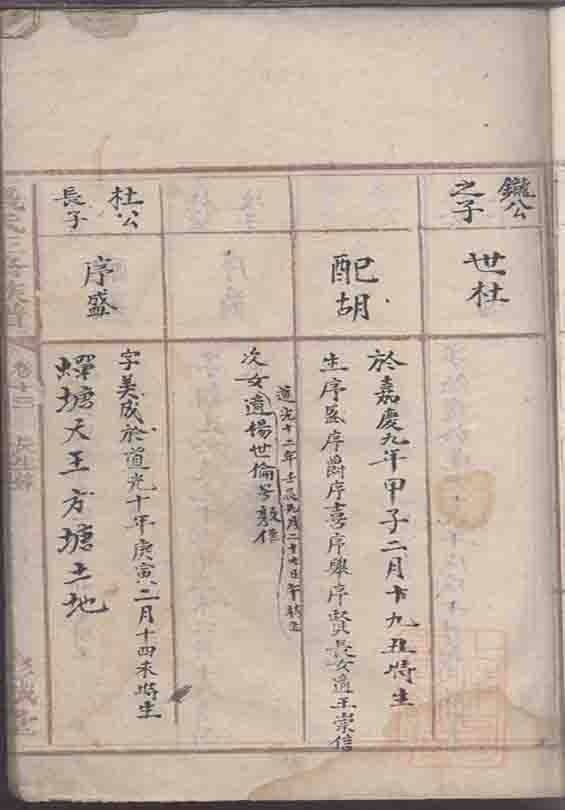 鑨公
之子
世杜
於嘉慶九年甲子二月十九丑時生
配胡
生序盛序爵序喜序舉序賢長女適王崇信
道光十二年壬辰九月二十七日午時生
次女適楊世倫
杜公
長子
序盛
字美成於道光十年庚寅二月十四未時生
蟬塘天王方塘土地
氏三修族譜
卷十二
堂